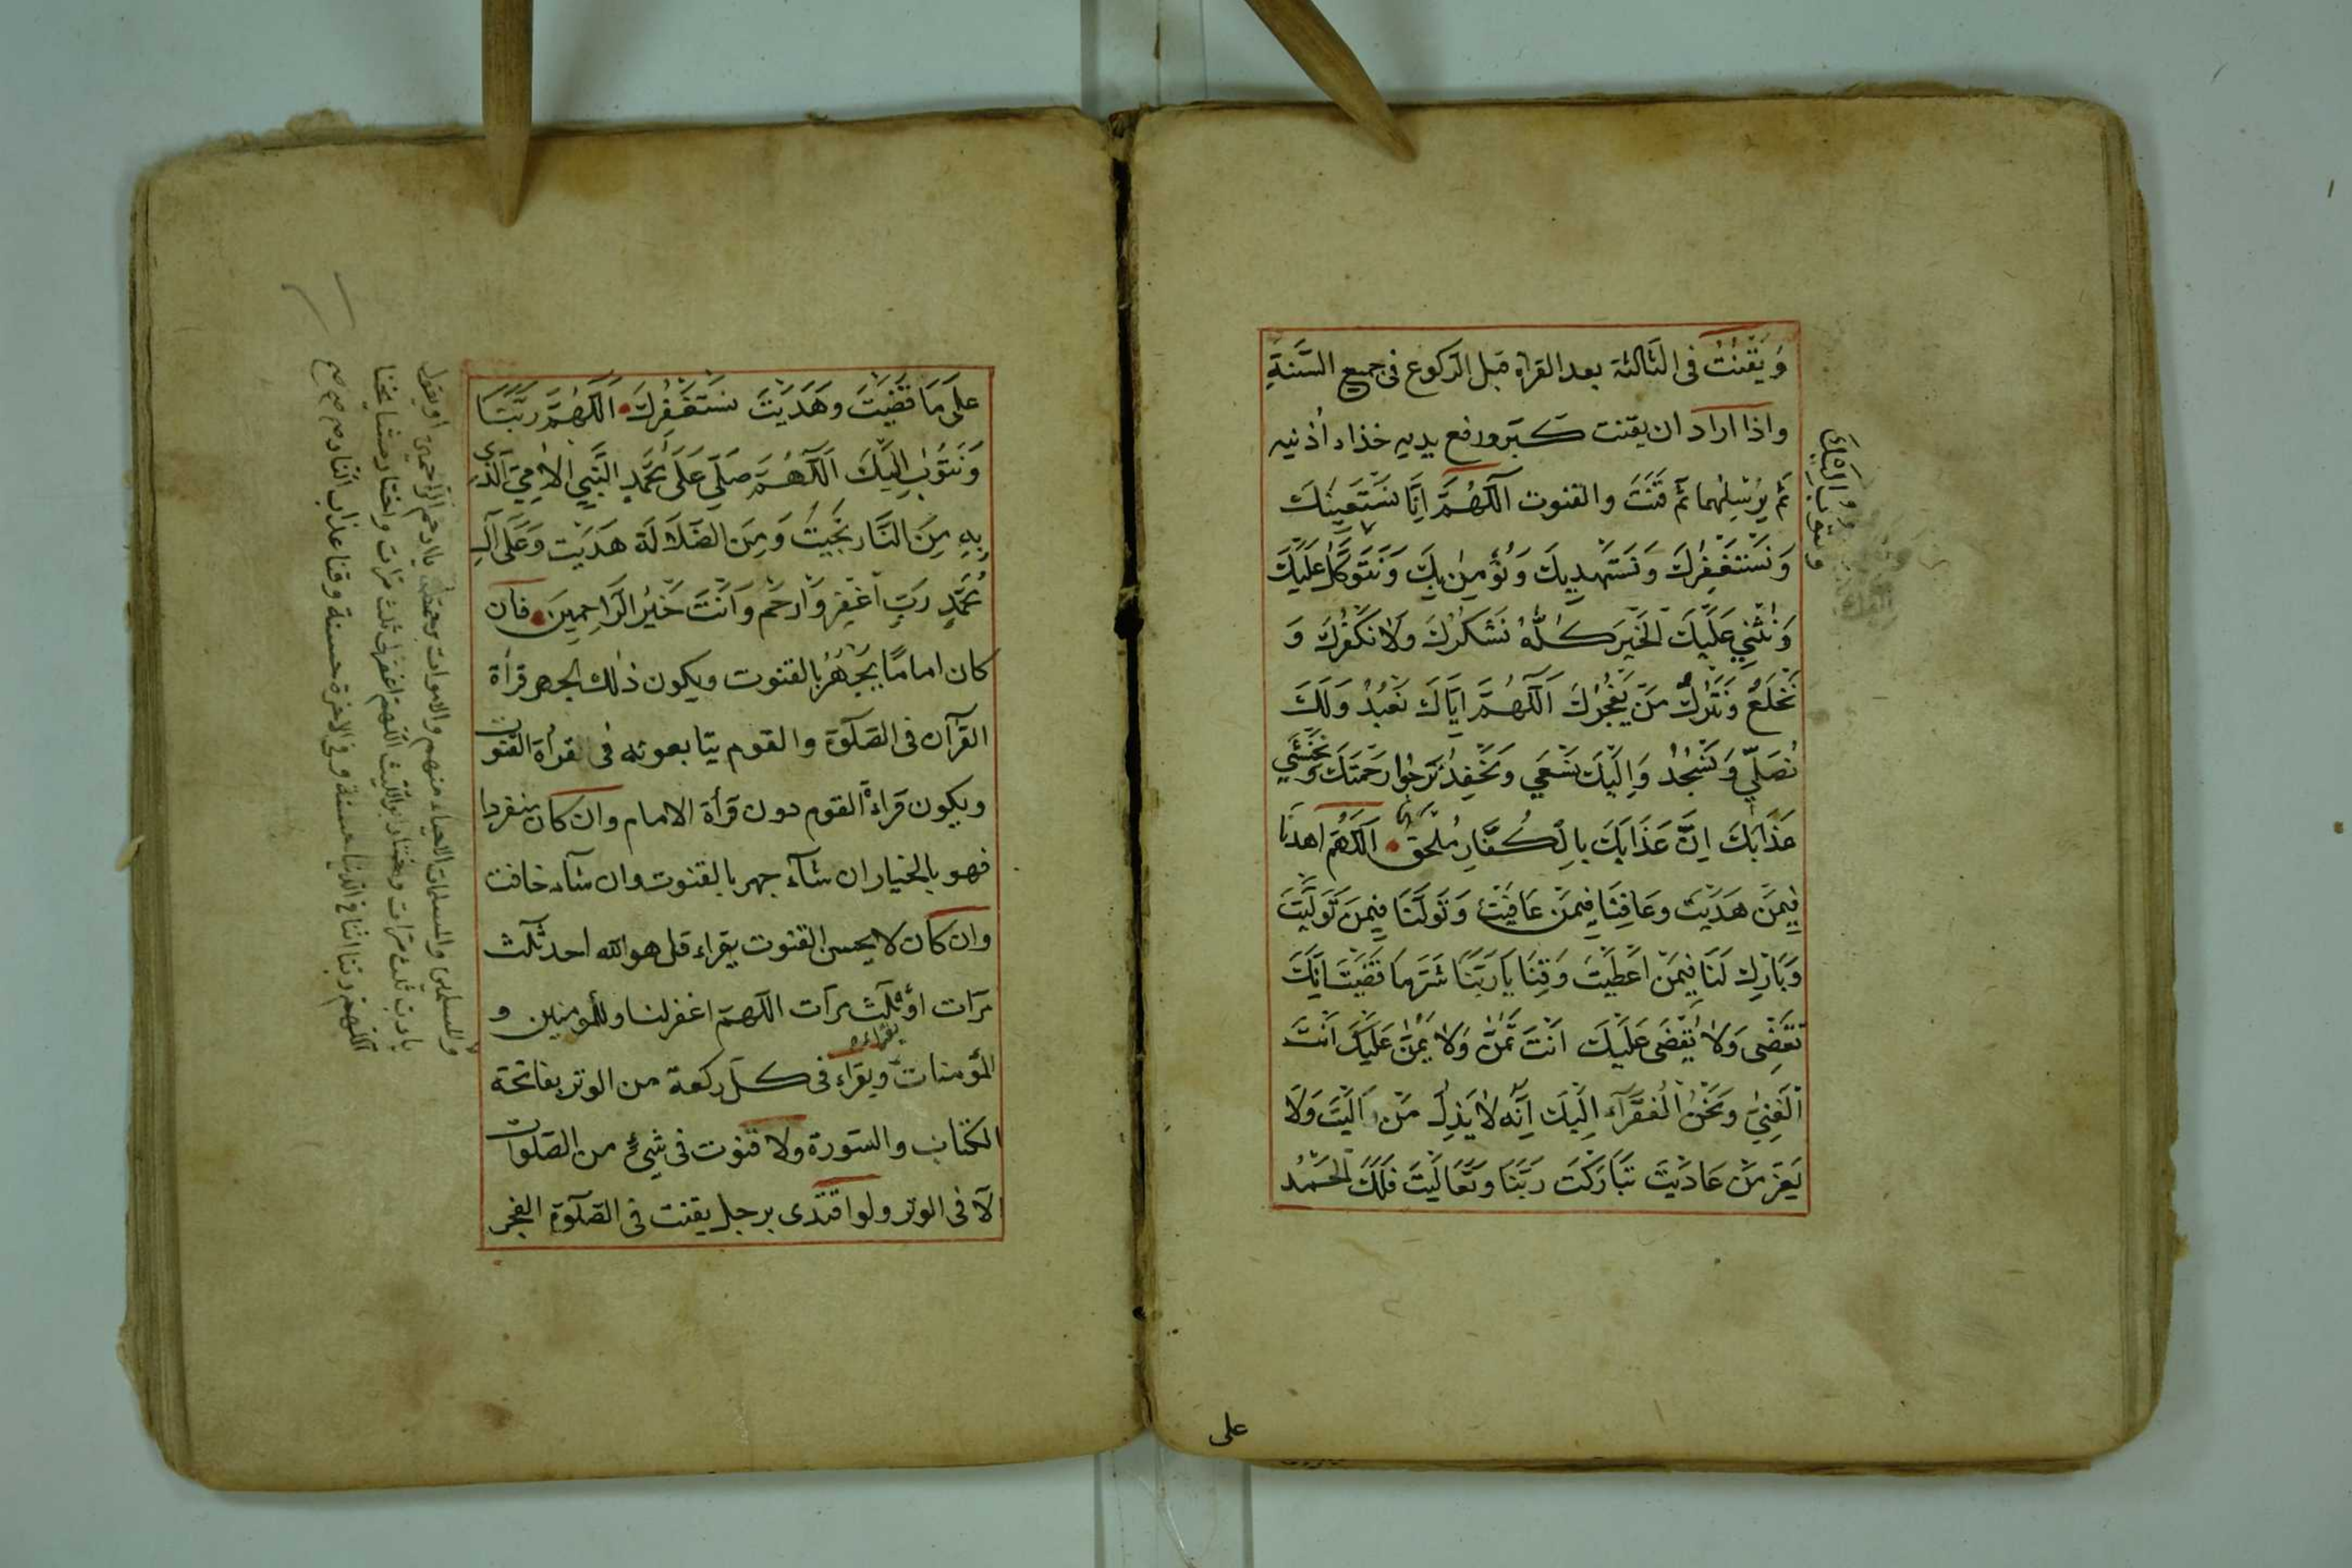 وَيَقْنُتُ فى الثالثة بعد القراة قبل الركوع فى جميع السَّنَةِ
واذا اراد ان يقنت كبر ورفع يديه حذاء اذنيه
ثم يرسلهما ثم قَنَتَ والقنوت اَللّٰهُمَّ اِنَّا نَسْتَعِينُكَ
وَنَسْتَغْفِرُكَ وَنَسْتَهْدِيكَ وَنُؤْمِنُ بِكَ وَنَتَوَكَّلُ عَلَيْكَ
ونتوب اليك
وَنُثْنِي عَلَيْكَ الْخَيْرَ كُلَّهُ نَشْكُرُكَ وَلَا نَكْفُرُكَ وَ
نَخْلَعُ وَنَتْرُكُ مَنْ يَفْجُرُكَ اَللّٰهُمَّ اِيَّاكَ نَعْبُدُ وَلَكَ
نُصَلِّي وَنَسْجُدُ وَاِلَيْكَ نَسْعَى وَنَحْفِدُ نَرْجُوا رَحْمَتَكَ وَنَخْشَي
عَذَابَكَ اِنَّ عَذَابَكَ بِالْكُفَّارِ مُلْحَقٌ اَللّٰهُمَّ اهْدِنَا
فِيمَنْ هَدَيْتَ وَعَافِنَا فِيمَنْ عَافَيْتَ وَتَوَلَّنَا فِيمَنْ تَوَلَّيْتَ
وَبَارِكْ لَنَا فِيمَنْ اَعْطَيْتَ وَقِنَا يَا رَبَّنَا شَرَّمَا قَضَيْتَ اِنَّكَ
تَقْضِى وَلَا يُقْضَى عَلَيْكَ اَنْتَ تَمُنُّ وَلَا يُمَنُّ عَلَيْكَ اَنْتَ
الْغَنِيُّ وَنَحْنُ الْفُقَرَآءُ اِلَيْكَ اِنَّهُ لَا يَذِلُّ مَنْ وَالَيْتَ وَلَا
يَعِزُّ مَنْ عَادَيْتَ تَبَارَكْتَ رَبَّنَا وَتَعَالَيْتَ فَلَكَ الْحَمْدُ
على
عَلَى مَا قَضَيْتَ وَهَدَيْتَ نَسْتَغْفِرُكَ اَللّٰهُمَّ رَبَّنَا
وَنَتُوبُ اِلَيْكَ اَللّٰهُمَّ صَلِّي عَلَى مُحَمَّدٍ النَّبِيِّ الْاُمِّيِّ الَّذِي
بِهِ مِنَ النَّارِ نَجَّيْتَ وَمِنَ الضَّلَالَةِ هَدَيْتَ وَعَلَى اٰلِ
مُحَمَّدٍ رَبِّ اغْفِرْ وَارْحَمْ وَاَنْتَ خَيْرُ الرَّاحِمِينَ فان
كان امامًا يَجْهَرُ بالقنوت ويكون ذلك الجهر قرأة
القرآن فى الصلوة والقوم يتابعونه فى القرأة القنوت
ويكون قراءة القوم دون قرأة الامام وان كان منفردا
فهو بالخيار ان شآء جهر بالقنوت وان شآء خافت
وان كان لا يحسن القنوت يقراء قل هو الله احد ثلث
مرات او ثلث مرآت اللهم اغفر لنا وللمؤمنين و
المؤمنات ويقراء فى كل ركعة من الوتر بفاتحة
الكتاب والسورة ولا قنوت فى شىء من الصلوات
الا فى الوتر ولو اقتدى برجل يقنت فى الصلوة الفجر
والمسلمين والمسلمات الاحياء منهم والاموات برحمتك يا ارحم الراحمين او يقول
يا رب ثلث مرات اللهم اغفرلى ثلث مرات واختار مشايخنا
اللهم ربنا اتنا فى الدنيا حسنة وفى الاخرة حسنة وقنا عذاب النار